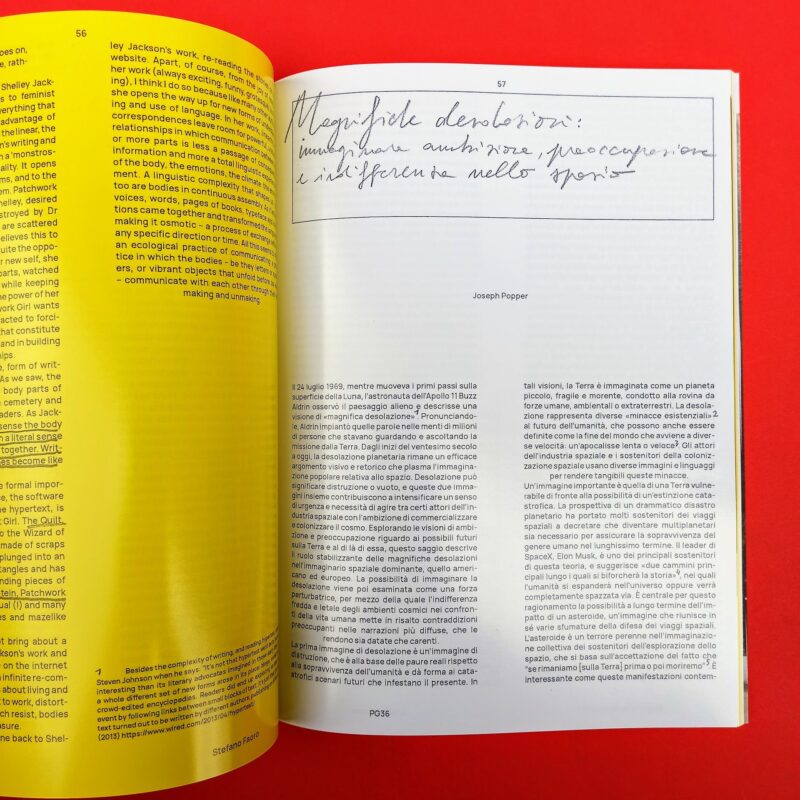 56
oes on,
e, rath-
Shelley Jack-
s to feminist
verything that
advantage of
the linear, the
n's writing and
'monstros-
ality. It opens
ms, and to the
em. Patchwork
helley, desired
stroyed by Dr
are scattered
elieves this to
uite the oppo-
r new self, she
parts, watched
while keeping
he power of her
work Girl wants
acted to forci-
that constitute
and in building
hips.
e, form of writ-
As we saw, the
body parts of
e cemetery and
aders. As Jack-
sense the body
n a literal sense
together. Writ-
es become like
e formal impor-
ce, the software
he hypertext, is
Girl. The Quilt,
o the Wizard of
made of scraps
plunged into an
tangles and has
nding pieces of
stein, Patchwork
ual (I) and many
s and mazelike
ot bring about a
ckson's work and
e on the internet
infinite re-com-
about living and
to work, distort-
ch resist, bodies
asure.
ne back to Shel-
ley Jackson's work, re-reading the
website. Apart, of course, from the joy of
her work (always exciting, funny, grotesque,
ing), I think I do so because like many other
she opens the way up for new forms of
ing and use of language. In her work,
correspondences leave room for powerful
relationships in which communication between
or more parts is less a passage of
information and more a total linguistic
of the body, the emotions, the climate, the
ment. A linguistic complexity that shapes
too are bodies in continuous assembly.
voices, words, pages of books, typeface
tions came together and transformed the
making it osmotic – a process of exchange
any specific direction or time. All this seems
an ecological practice of communicating,
tice in which the bodies – be they letters or
ers, or vibrant objects that unfold before
– communicate with each other through the
making and unmaking.
1 Besides the complexity of writing, and reading
Steven Johnson when he says: "It's not that hypertext
interesting than its literary advocates imagined
a whole different set of new forms arose in its place
crowd-edited encyclopedias. Readers did end up
event by following links between small blocks of
text turned out to be written by different authors
(2013) https://www.wired.com/2013/04/hypertext/
Stefano Faoro
57
Magnifiche desolazioni:
immaginare ambizione, preoccupazione
e indifferenza nello spazio
Joseph Popper
Il 24 luglio 1969, mentre muoveva i primi passi sulla
superficie della Luna, l'astronauta dell'Apollo 11 Buzz
Aldrin osservò il paesaggio alieno e descrisse una
visione di «magnifica desolazione»1. Pronunciando-
le, Aldrin impiantò quelle parole nelle menti di milioni
di persone che stavano guardando e ascoltando la
missione dalla Terra. Dagli inizi del ventesimo secolo
a oggi, la desolazione planetaria rimane un efficace
argomento visivo e retorico che plasma l'immagina-
zione popolare relativa allo spazio. Desolazione può
significare distruzione o vuoto, e queste due imma-
gini insieme contribuiscono a intensificare un senso
di urgenza e necessità di agire tra certi attori dell'in-
dustria spaziale con l'ambizione di commercializzare
e colonizzare il cosmo. Esplorando le visioni di ambi-
zione e preoccupazione riguardo ai possibili futuri
sulla Terra e al di là di essa, questo saggio descrive
il ruolo stabilizzante delle magnifiche desolazioni
nell'immaginario spaziale dominante, quello ameri-
cano ed europeo. La possibilità di immaginare la
desolazione viene poi esaminata come una forza
perturbatrice, per mezzo della quale l'indifferenza
fredda e letale degli ambienti cosmici nei confron-
ti della vita umana mette in risalto contraddizioni
preoccupanti nelle narrazioni più diffuse, che le
rendono sia datate che carenti.
La prima immagine di desolazione è un'immagine di
distruzione, che è alla base delle paure reali rispetto
alla sopravvivenza dell'umanità e dà forma ai cata-
strofici scenari futuri che infestano il presente. In
tali visioni, la Terra è immaginata come un pianeta
piccolo, fragile e morente, condotto alla rovina da
forze umane, ambientali o extraterrestri. La desola-
zione rappresenta diverse «minacce esistenziali»2
al futuro dell'umanità, che possono anche essere
definite come la fine del mondo che avviene a diver-
se velocità: un'apocalisse lenta o veloce3. Gli attori
dell'industria spaziale e i sostenitori della coloniz-
zazione spaziale usano diverse immagini e linguaggi
per rendere tangibili queste minacce.
Un'immagine importante è quella di una Terra vulne-
rabile di fronte alla possibilità di un'estinzione cata-
strofica. La prospettiva di un drammatico disastro
planetario ha portato molti sostenitori dei viaggi
spaziali a decretare che diventare multiplanetari
sia necessario per assicurare la sopravvivenza del
genere umano nel lunghissimo termine. Il leader di
SpaceX, Elon Musk, è uno dei principali sostenitori
di questa teoria, e suggerisce «due cammini prin-
cipali lungo i quali si biforcherà la storia»4, nei quali
l'umanità si espanderà nell'universo oppure verrà
completamente spazzata via. È centrale per questo
ragionamento la possibilità a lungo termine dell'im-
patto di un asteroide, un'immagine che riunisce in
sé varie sfumature della difesa dei viaggi spaziali.
L'asteroide è un terrore perenne nell'immaginazio-
ne collettiva dei sostenitori dell'esplorazione dello
spazio, che si basa sull'accettazione del fatto che
"se rimaniamo [sulla Terra] prima o poi moriremo"5 È
interessante come queste manifestazioni contem-
PG36